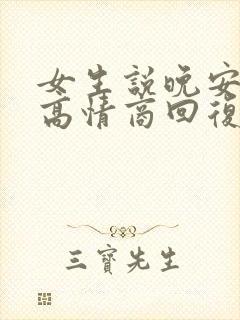 女生説晚安
高情商回復
三寶先生